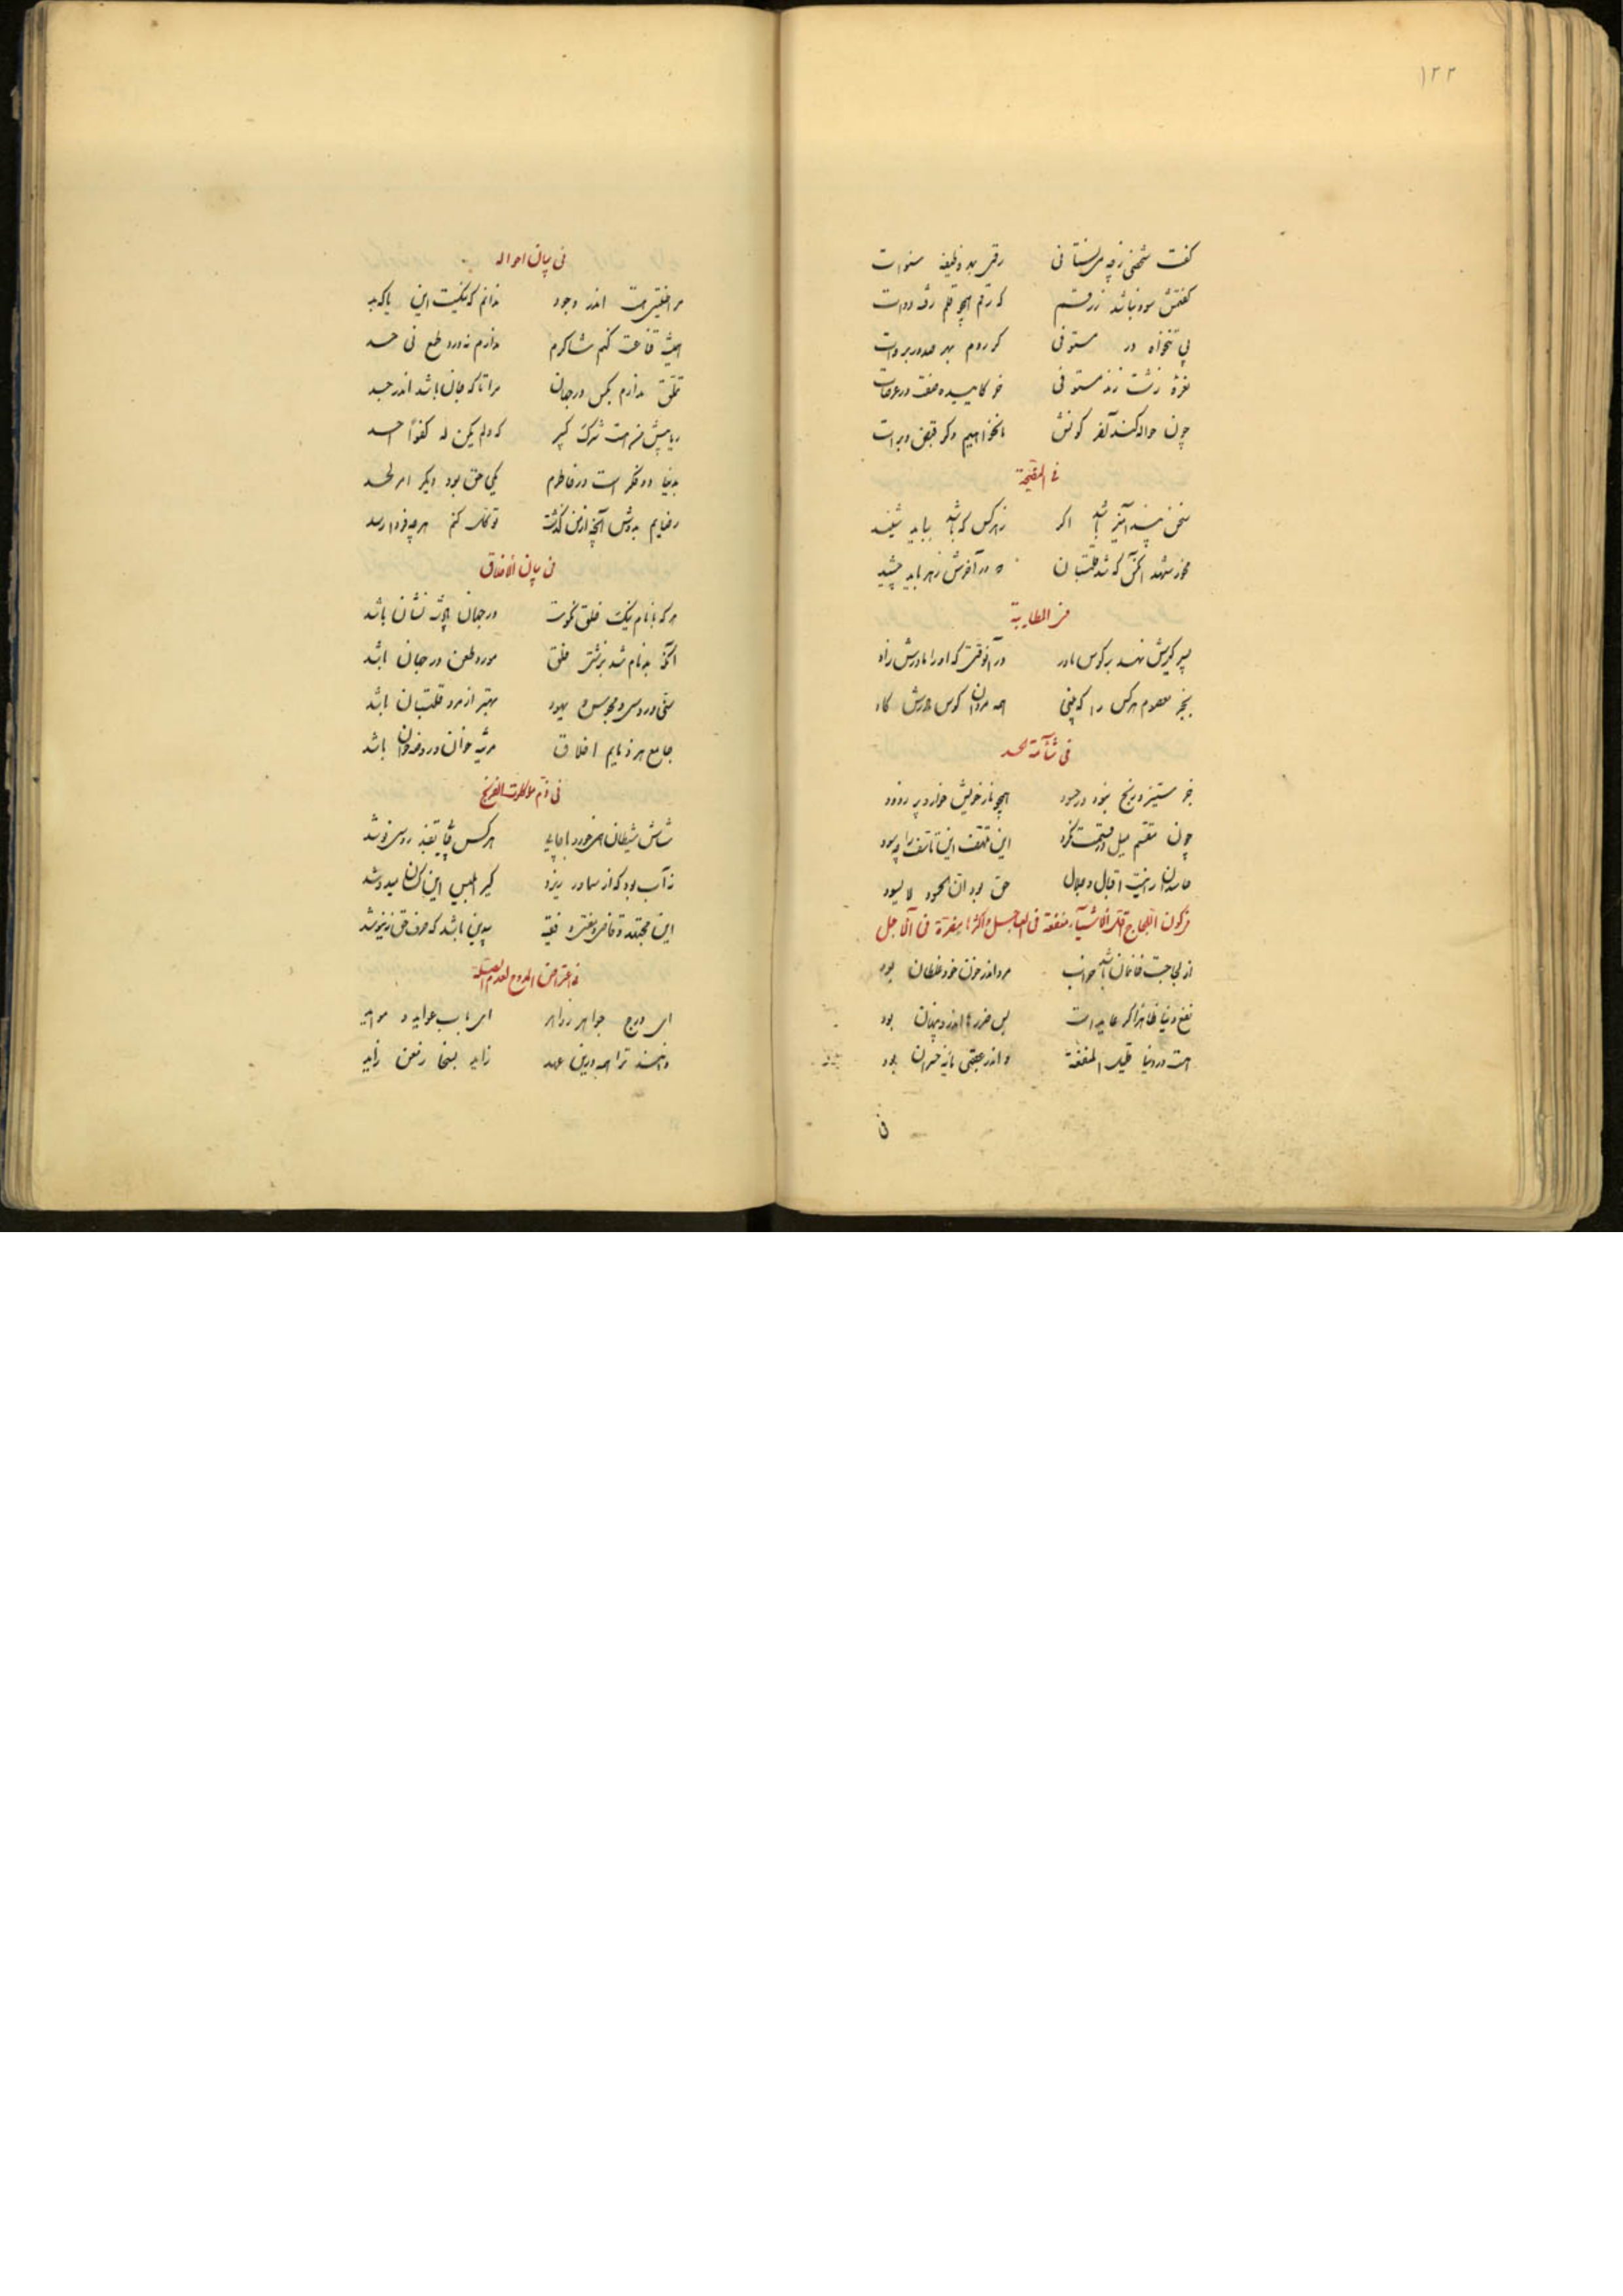 ۱۲۲
گفت شخصی ز چه می نستانی رقمی به وظیفه سنوات
گفتمش سود نباشد ز رقم که رقم همچو قلم رفته دوات
پی تنخواه در مستوفی گر روم بهر صدور بروات
غره زشت زند مستوفی
چون حواله کند آنقر کونش نخواهیم دگر قبض و برات
فی النصیحة
سخن پند آمیز باشد اگر ز هر کس که باشد بباید شنید
مخور شهد آنکس که شد قلتبان که در آخرش زهر باید چشید
فی المطایبة
پسر کیرش نهد بر کوس مادر در آنوقتی که او را مادرش زاد
بجز معصوم هر کس را که بینی همه مردان کوس مادرش گاد
فی شآمة الحسد
جز ستیز و رنج نبود در حسود همچو نار خویش خوارد پر ز دود
چون مقسم میل در قسمت نکرد این تلهف این تاسف را چه سود
حاسدان را نیست اقبال و جلال حق بود ان الحسود لا یسود
فی کون اللجاج اقل الاشیآء منفعة فی العاجل و اکثرها مضرة فی الآجل
از لجاجت خانمان باشد خراب مرد اندر خون خود غلطان بود
نفع دنیا ظاهرا گر عاید است بس ضررها اندرو پنهان بود
هست در دنیا قلیل المنفعة و اندر عقبی مایه خسران بود
فی بیان احواله
مرا خلقتی هست اندر وجود ندانم که نیکست این یا که بد
همیشه قناعت کنم شاکرم ندارم نه درد طمع نی حسد
تملق ندارم بکس در جهان مرا تا که جان باشد اندر جسد
ریا پیش من هست شرک کبیر که و لم یکن له کفوا احد
بدنیا دو فکر است در خاطرم یکی حق بود دیگر امر لحد
رضایم بدوش آنچه از من گذشت توکل کنم هر چه فردا رسد
فی بیان الاخلاق
هر که با نام نیک خلق نکوست در جهان باشد نشان باشد
آنکه بدنام شد بزشتی خلق مورد طعن در جهان باشد
سنی و روسی و مجوس و یهود بهتر از مرد قلتبان باشد
جامع هر ذمایم اخلاق مرثیه خوان و روضه خوان باشد
فی ذم ماکولات الفرنج
شاش شیطان همی خورد با چای هر کس که قند روسی نوشد
ز آب بود که از سماور ریزد کیر ابلیس این کسان میدوشد
این مجتهد و قاضی و مفتی و فقیه بیدین باشد که حرف حق ننیوشد
فی اعتراض الممدوح لعدم الصلة
ای درج جواهر زواهر ای باب عواید و مواید
دانند ترا همه درین عهد زاید بسخا ز معن زاید